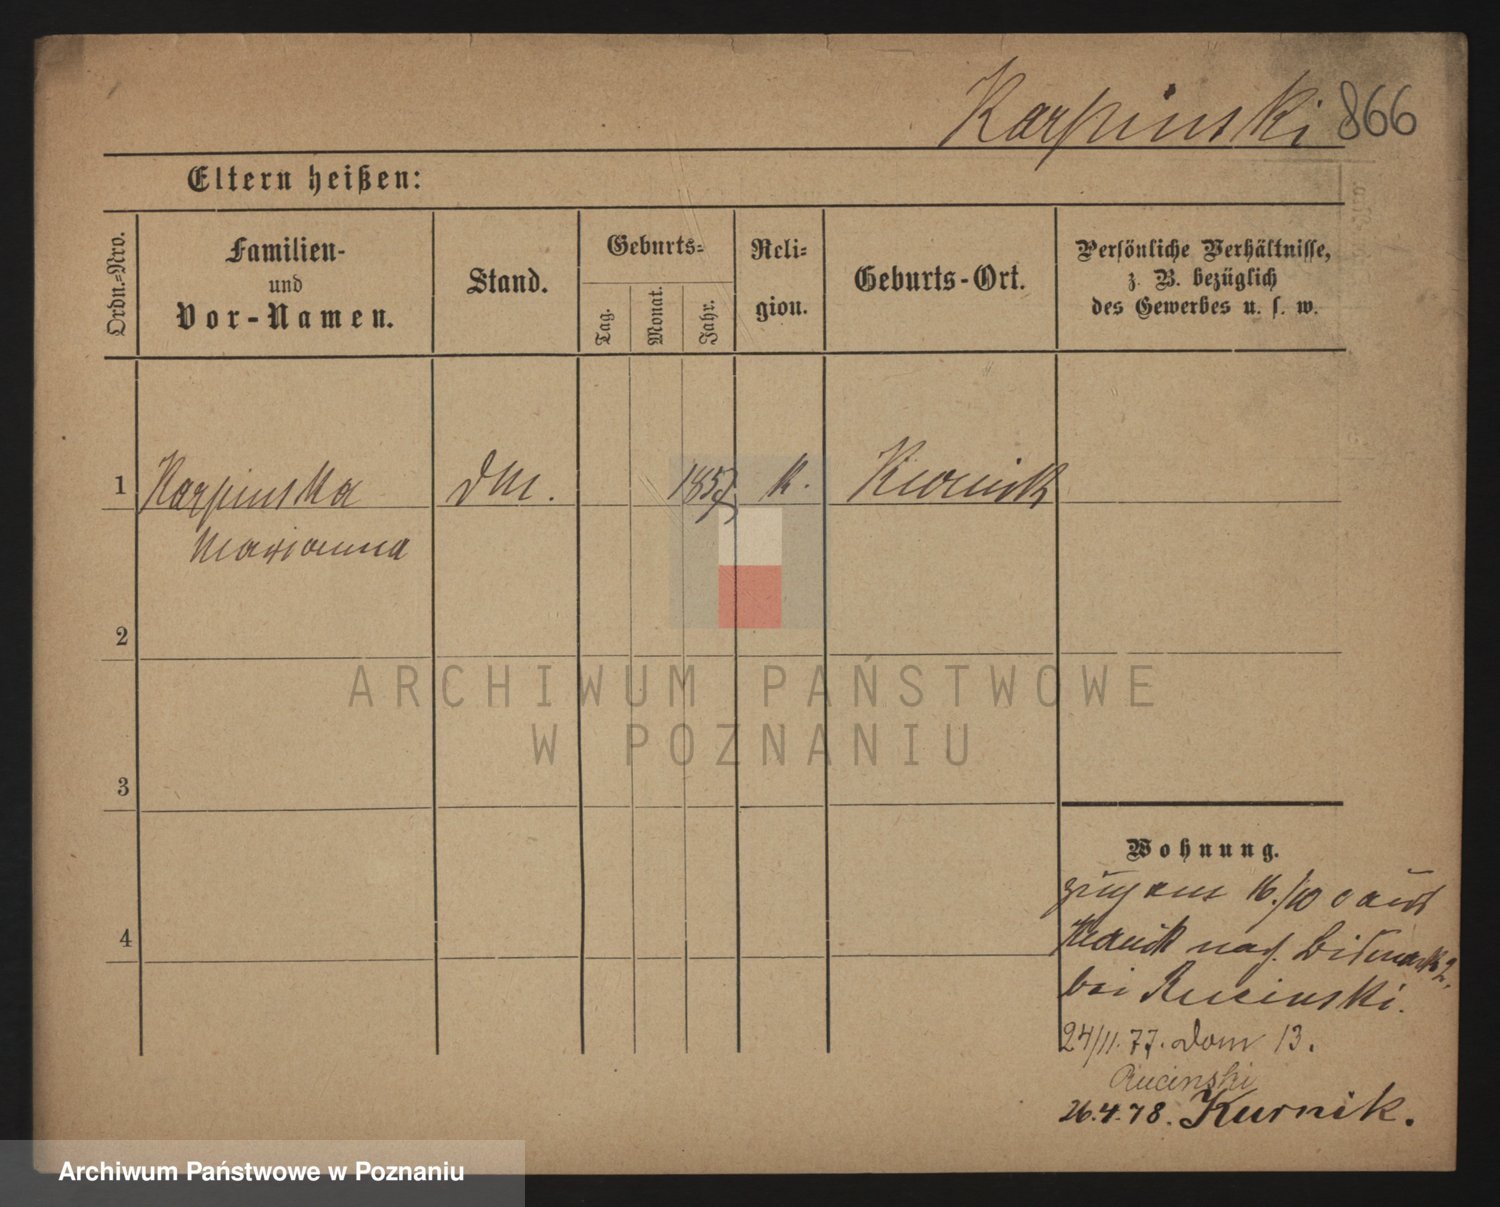 Karpinski 866
Eltern heißen:
Ordn.-Nro.
Familien-
und
Vor-Namen.
Stand.
Geburts-
Tag.
Monat.
Jahr.
Reli-
gion.
Geburts-Ort.
Persönliche Verhältnisse,
z. B. bezüglich
des Gewerbes u. s. w.
1 Karpinska k. Kurnik
Marianna
2
3
4
Wohnung.
16./10
bei Rucinski.
24/11.77. Dom 13.
Rucinski
26.4.78. Kurnik.
ARCHIWUM PAŃSTWOWE
W POZNANIU
Archiwum Państwowe w Poznaniu